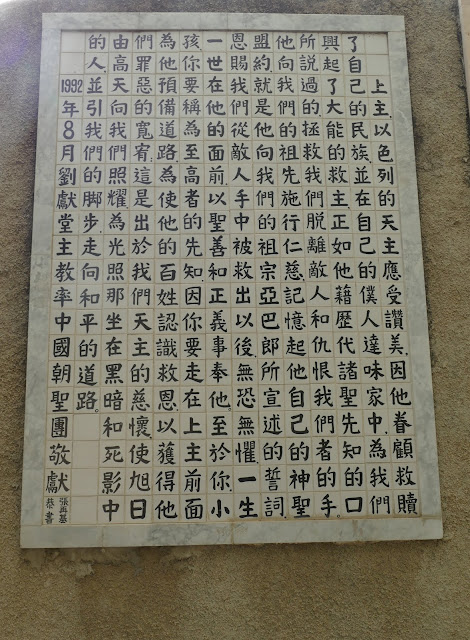 上主,以色列的天主應受讚美,因他眷顧救贖
了自己的民族,並在自己的僕人達味家中,為我們
興起了大能的救主,正如他藉歷代諸聖先知的口
所說過的拯救我們脫離敵人和仇恨我們者的手.
他向我們的祖先施行仁慈,記憶起他自己的神聖
盟約就是他向我們的祖宗亞巴郎所宣述的誓詞.
恩賜我們從敵人手中被救出以後,無恐無懼,一生
一世在他的面前,以聖善和正義事奉他.至於你,小
孩,你要稱為至高者的先知,因你要走在上主前面
為他預備道路,為使他的百姓認識救恩,以獲得他
們罪惡的寬宥;這是出於我們天主的慈懷,使旭日
由高天向我們照耀,為光照那坐在黑暗和死影中
的人,並引我們的脚步,走向和平的道路.
1992年8月劉獻堂主教率中國朝聖團敬獻
張再基
恭書